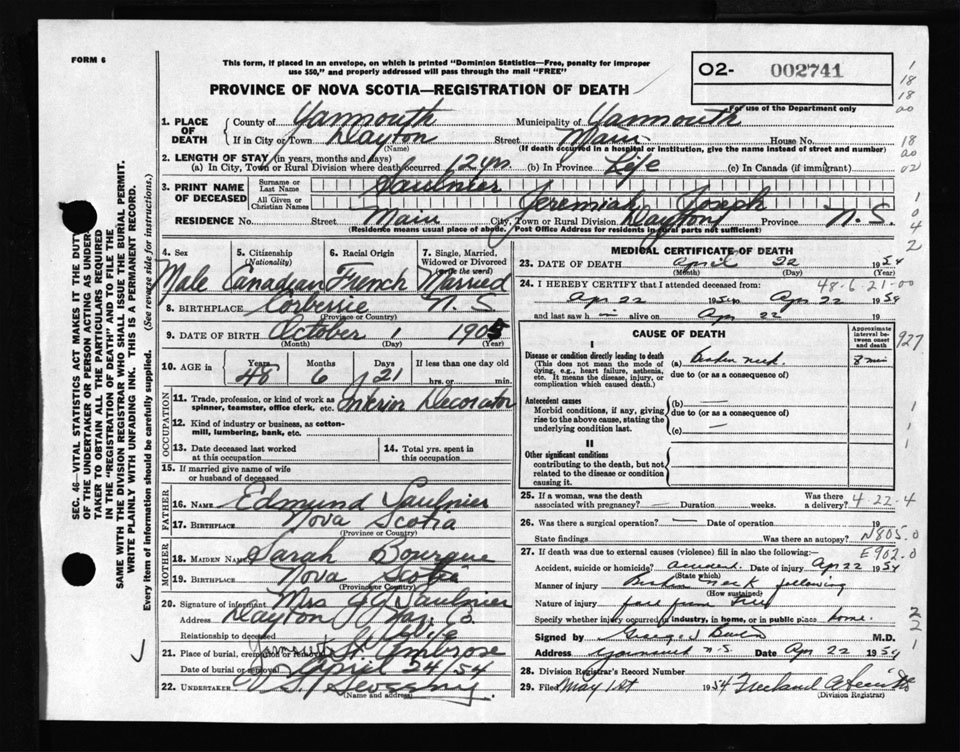 FORM 6
This form, if placed in an envelope, on which is printed "Dominion Statistics—Free, penalty for improper
use $50," and properly addressed will pass through the mail "FREE"
02- 002741
For use of the Department only
PROVINCE OF NOVA SCOTIA—REGISTRATION OF DEATH
1. PLACE OF DEATH
County of Yarmouth Municipality of Yarmouth
If in City or Town Dayton Street Main House No.
(Name) (If death occurred in a hospital or institution, give the name instead of street and number)
2. LENGTH OF STAY (in years, months and days)
(a) In City, Town or Rural Division where death occurred 12 yrs. (b) In Province Life (c) In Canada (if immigrant)
3. PRINT NAME OF DECEASED
Surname or Last Name Saulnier
All Given or Christian Names Jeremiah Joseph
RESIDENCE No. Street Main City, Town or Rural Division Dayton Province N.S.
(Residence means usual place of abode. Post Office Address for residents in rural parts not sufficient)
4. Sex Male
5. Citizenship (Nationality) Canadian
6. Racial Origin French
7. Single, Married, Widowed or Divorced (write the word) Married
8. BIRTHPLACE Corberrie N.S.
(Province or Country)
9. DATE OF BIRTH October 1 1905
(Month) (Day) (Year)
10. AGE in Years 48 Months 6 Days 21 If less than one day
hrs. or min.
OCCUPATION
11. Trade, profession, or kind of work as spinner, teamster, office clerk, etc. Interior Decorator
12. Kind of industry or business, as cotton-mill, lumbering, bank, etc.
13. Date deceased last worked at this occupation
14. Total yrs. spent in this occupation
15. If married give name of wife or husband of deceased
FATHER
16. Name Edmund Saulnier
17. Birthplace Nova Scotia
(Province or Country)
MOTHER
18. Maiden Name Sarah Bourque
19. Birthplace Nova Scotia
(Province or Country)
20. Signature of informant Mrs J J Saulnier
Address Dayton Yar. Co.
Relationship to deceased Wife
21. Place of burial, cremation or removal Yarmouth St. Ambrose
Date of burial or removal April 24 54
22. UNDERTAKER
(Name and address)
MEDICAL CERTIFICATE OF DEATH
23. DATE OF DEATH April 22 1954
(Month) (Day) (Year)
24. I HEREBY CERTIFY that I attended deceased from 48-6-21-00
Apr 22 1954 to Apr 22 1954
and last saw h im alive on Apr 22 19
CAUSE OF DEATH
Approximate interval between onset and death
927
I
Disease or condition directly leading to death (a) Broken neck. 8 min
(This does not mean the mode of dying, e.g., heart failure, asthenia, etc. It means the disease, injury, or complication which caused death.)
due to (or as a consequence of)
Antecedent causes (b) —
Morbid conditions, if any, giving rise to the above cause, stating the underlying condition last.
due to (or as a consequence of)
(c) —
II
Other significant conditions
contributing to the death, but not related to the disease or condition causing it.
25. If a woman, was the death associated with pregnancy? — Duration weeks. Was there a delivery? 4-22-4
26. Was there a surgical operation? — Date of operation 19
State findings Was there an autopsy? N805.0
27. If death was due to external causes (violence) fill in also the following:— E902.0
Accident, suicide or homicide? accident. Date of injury Apr 22 1954
(State which)
Manner of injury Broken neck following
(How sustained)
Nature of injury fall from tree
Specify whether injury occurred in industry, in home, or in public place home.
Signed by M.D.
Address Yarmouth N.S. Date Apr 22 1954
28. Division Registrar's Record Number
29. Filed May 1st 1954
(Division Registrar)
SEC. 46—VITAL STATISTICS ACT MAKES IT THE DUTY
OF THE UNDERTAKER OR PERSON ACTING AS UNDER-
TAKER TO OBTAIN ALL THE PARTICULARS REQUIRED
IN THE "REGISTRATION OF DEATH" AND TO FILE THE
SAME WITH THE DIVISION REGISTRAR WHO SHALL ISSUE THE BURIAL PERMIT.
WRITE PLAINLY WITH UNFADING INK. THIS IS A PERMANENT RECORD.
Every item of information should be carefully supplied. (See reverse side for instructions.)